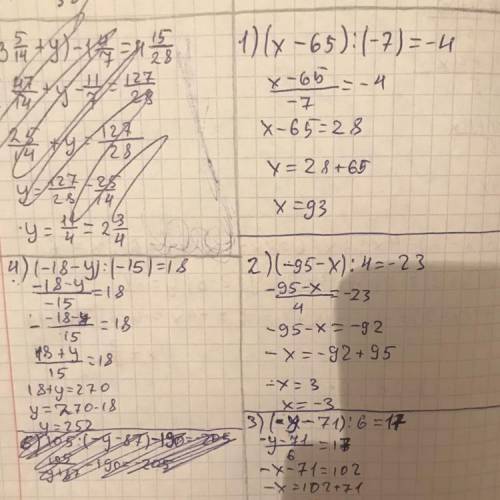 3 5/14 + y) - 1 4/7 = 4 15/28
47/14 + y - 11/7 = 127/28
25/14 + y = 127/28
y = 127/28 - 25/14
y = 11/4 = 2 3/4
4) (-18-y):(-15)=18
(-18-y)/(-15) = 18
- (-18-y)/15 = 18
(18+y)/15 = 18
18+y=270
y=270-18
y=252
5) 105:(-y-87)-190=-205
-190=-205
1) (x-65):(-7)=-4
(x-65)/(-7) = -4
x-65=28
x=28+65
x=93
2) (-95-x):4=-23
(-95-x)/4 = -23
-95-x=-92
-x=-92+95
-x=3
x=-3
3) (-y-71):6=17
(-y-71)/6 = 17
-x-71=102
-x=102+71